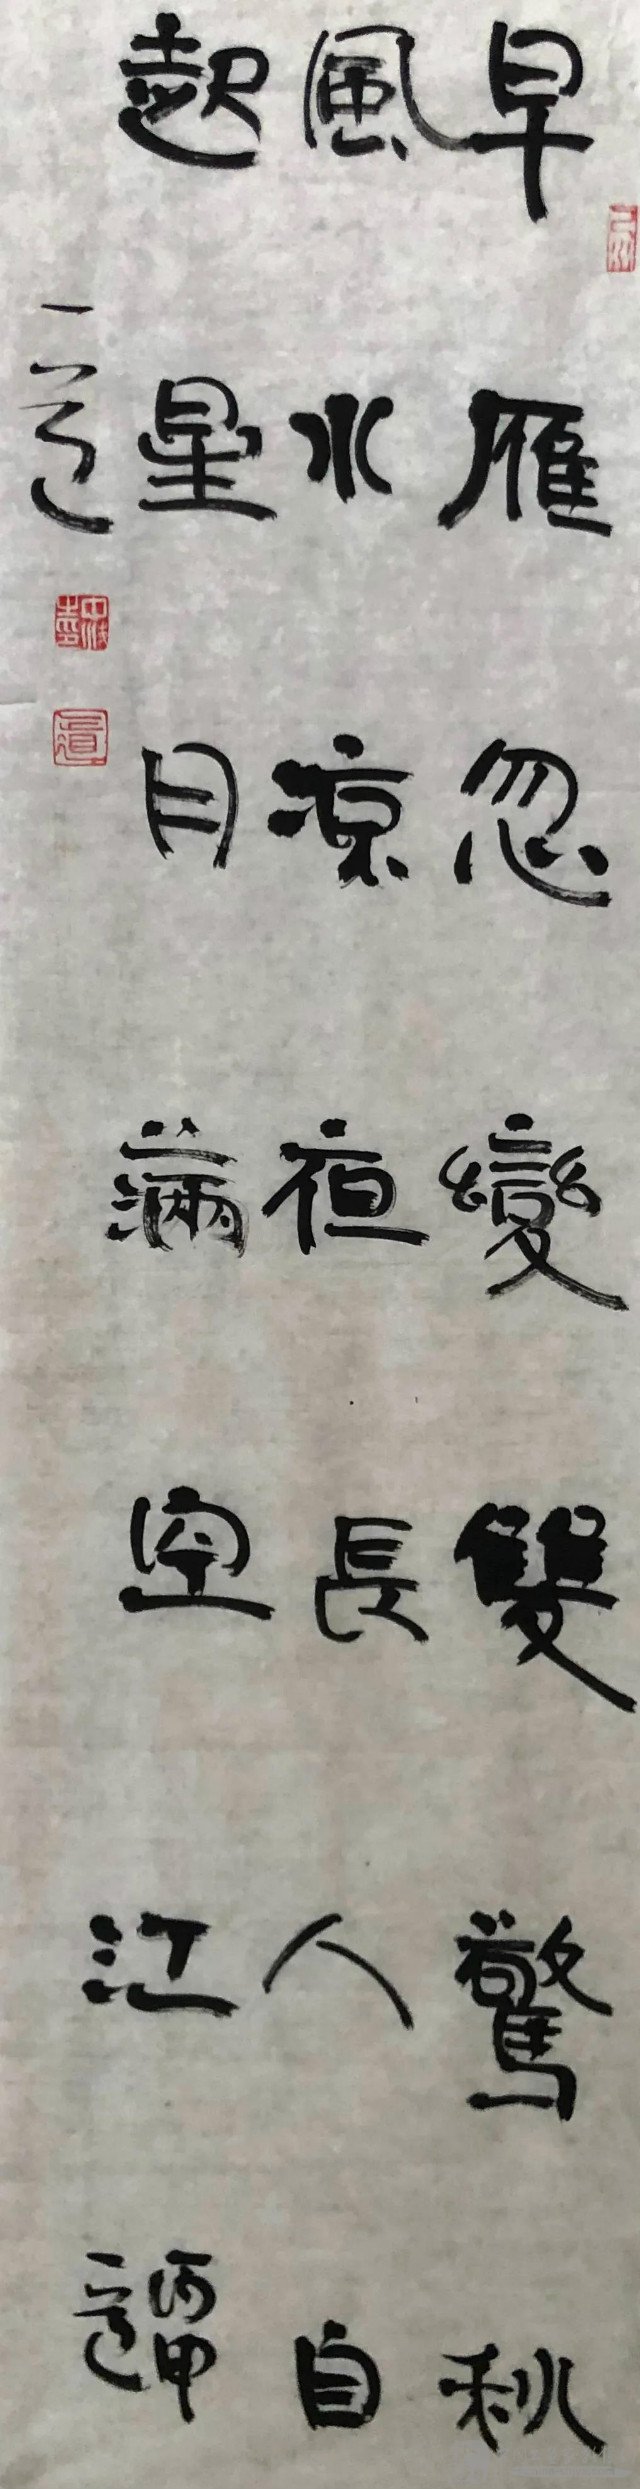 早雁忽變雙驚秋
風水涼夜長人自
起星月滿空江
丙申
一道